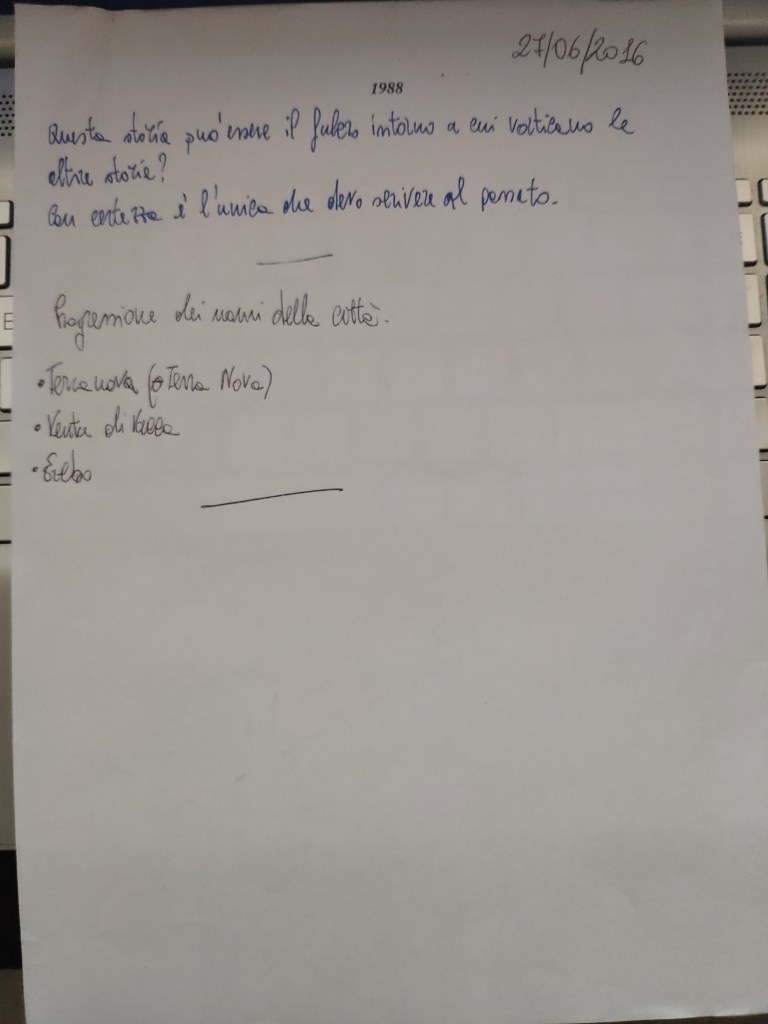 27/06/2016
1988
Questa storia può essere il fulcro intorno a cui vorticano le
altre storie?
Con certezza è l'unica che devo scrivere al passato.
Progressione dei nomi della città.
• Terranova (o Terra Nova)
• Venta di
• Erebo